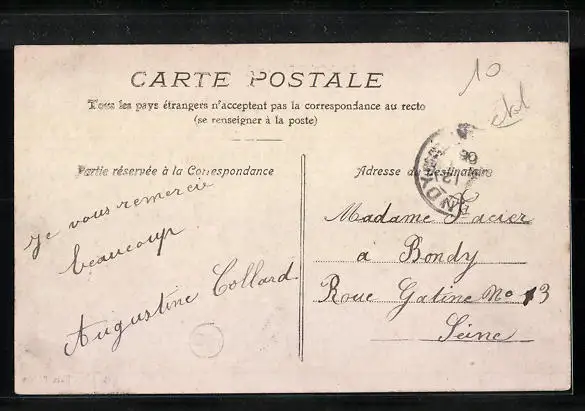 CARTE POSTALE
Tous les pays étrangers n'acceptent pas la correspondance au recto
(se renseigner à la poste)
Partie réservée à la Correspondance
Je vous remercie
beaucoup
Augustine Collard
10
Adresse du Destinataire
NDY
12
06
Madame Pacier
a Bondy
Roue Galine No 13
Seine